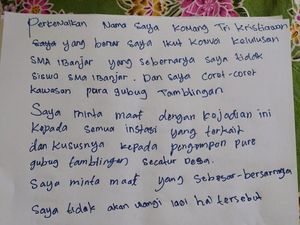 Perkenalkan Nama saya Komang Tri Kristiawan
saya yang benar saya ikut konvoi kelulusan
SMA 1 Banjar yang sebernarya saya tidak
siswa SMA 1 Banjar. Dan saya coret-coret
kawasan pura gubug Tamblingan
Saya minta maaf dengan kejadian ini
kepada semua instasi yang terkait
dan kususnya kepada pengempon pure
gubug tamblingan secatur Desa.
Saya minta maaf yang sebesar-bersarnya
Saya tidak akan ulangi lagi hal tersebut